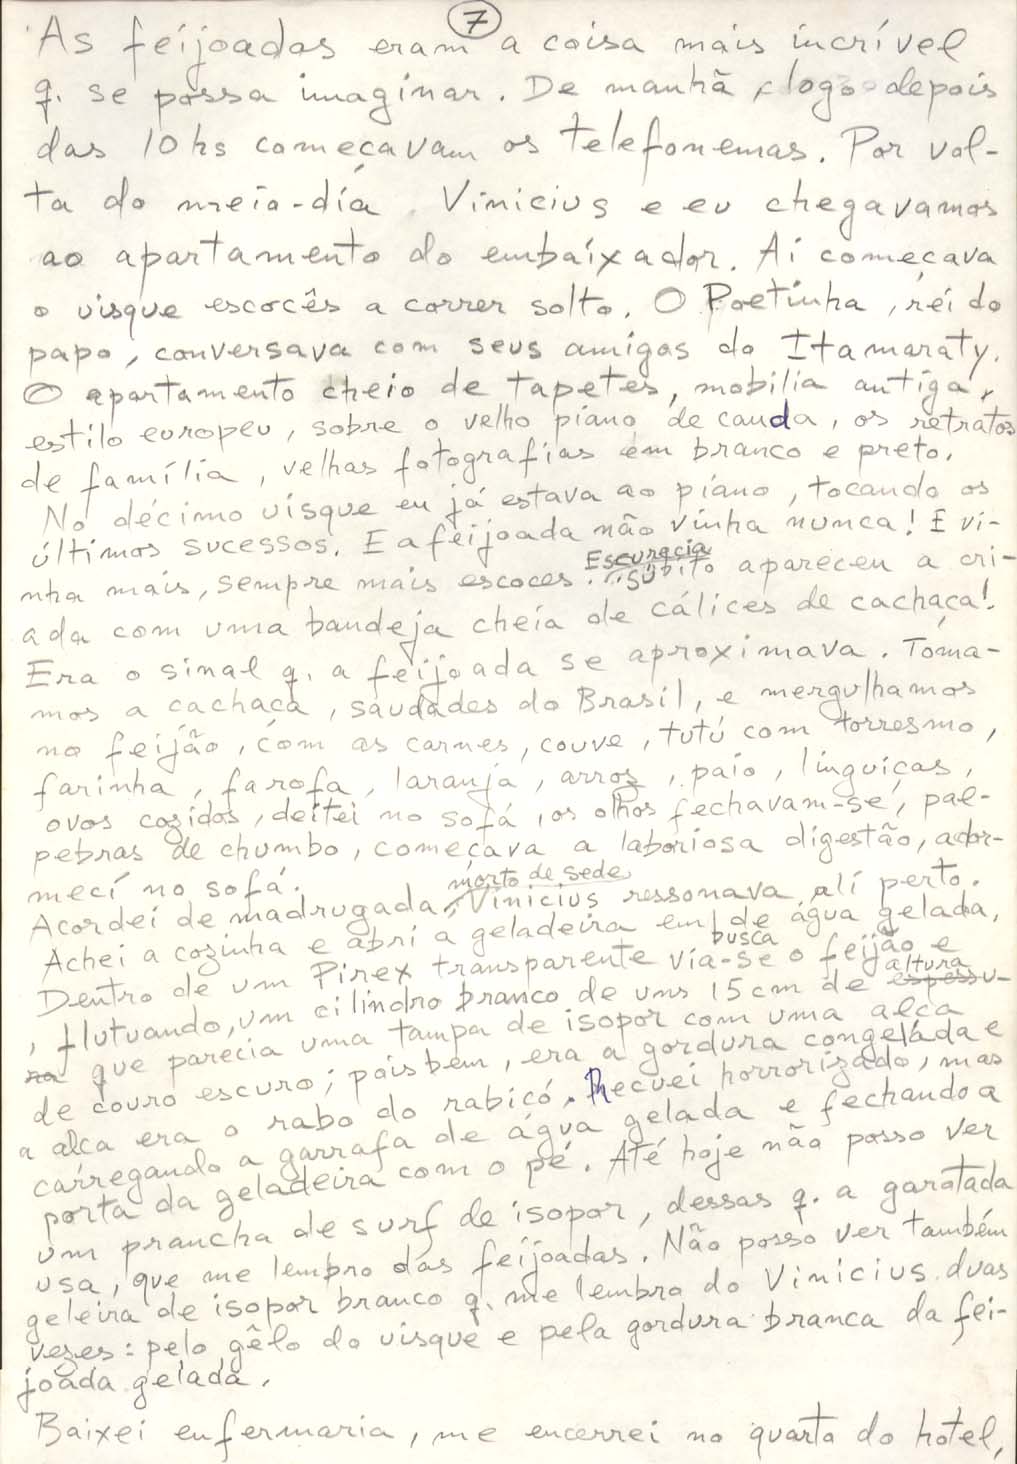 7
As feijoadas eram a coisa mais incrível
q. se possa imaginar. De manhã, logo depois
das 10 hs começavam os telefonemas. Por vol-
ta do meio-dia Vinicius e eu chegavamos
ao apartamento do embaixador. Aí começava
o uisque escocês a correr solto. O Poetinha, rei do
papo, conversava com seus amigos do Itamaraty.
O apartamento cheio de tapetes, mobília antiga,
estilo europeu, sobre o velho piano de cauda, os retratos
de família, velhas fotografias em branco e preto.
No décimo uisque eu já estava ao piano, tocando os
últimos sucessos. E a feijoada não vinha nunca! E vi-
nha mais, sempre mais escoces. Escurecia, súbito apareceu a cri-
ada com uma bandeja cheia de cálices de cachaça!
Era o sinal q. a feijoada se aproximava. Toma-
mos a cachaça, saudades do Brasil, e mergulhamos
no feijão, com as carnes, couve, tutú com torresmo,
farinha, farofa, laranja, arroz, paio, linguiças,
ovos cozidos, deitei no sofá, os olhos fechavam-se, pal-
pebras de chumbo, começava a laboriosa digestão, ador-
mecí no sofá.
Acordei de madrugada, morto de sede, Vinicius ressonava alí perto.
Achei a cozinha e abri a geladeira em busca de água gelada,
Dentro de um Pirex transparente via-se o feijão e
, flutuando, um cilindro branco de uns 15 cm de espessu- altura
ra que parecia uma tampa de isopor com uma alça
de couro escuro; pois bem, era a gordura congelada e
a alça era o rabo do rabicó. Recuei horrorizado, mas
carregando a garrafa de água gelada e fechando a
porta da geladeira com o pé. Até hoje não posso ver
um prancha de surf de isopor, dessas q. a garotada
usa, que me lembro das feijoadas. Não posso ver também
geleira de isopor branco q. me lembro do Vinicius duas
vezes: pelo gêlo do uisque e pela gordura branca da fei-
joada gelada.
Baixei enfermaria, me encerrei no quarto do hotel,